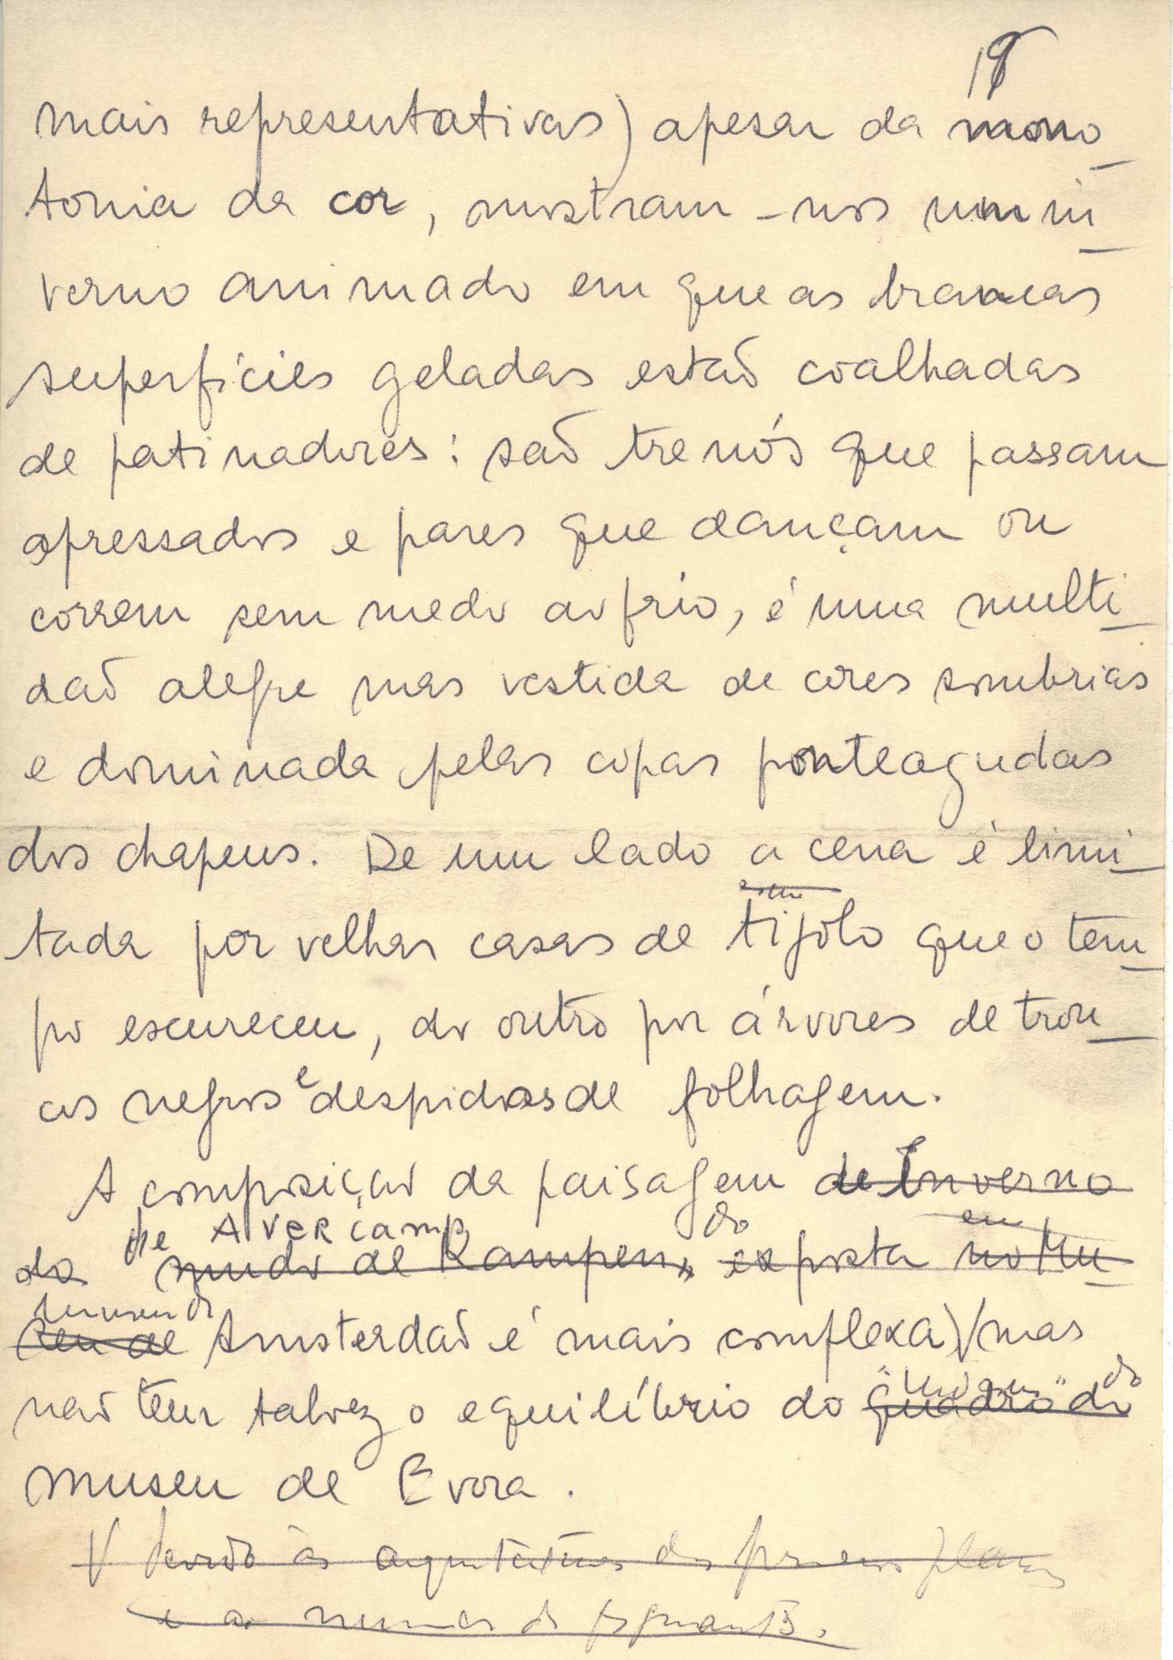 mais representativas) apesar da mono_
tonia da cor, mostram-nos um in_
verno animado em que as brancas
superfícies geladas estão coalhadas
de patinadores: são trenós que passam
apressados e pares que dançam ou
correm sem medo ao frio, é uma multi_
dão alegre mas vestida de cores sombrias
e dominada pelas copas ponteagudas
dos chapeus. De um lado a cena é limi_
tada por velhas casas de tijolo que o tem_
po escureceu, do outro por árvores de tron_
cos negros e despidos de folhagem.
A composição da paisagem de Inverno
de Avercamp do em
do mudo de Kampen, exposta no Mu_
museu de
seu de Amsterdão é mais complexa) V mas
do
não tem talvez o equilíbrio do quadro do
museu de Evora.
V devido às arquitecturas dos primeiros planos
e ao numero de figurantes.